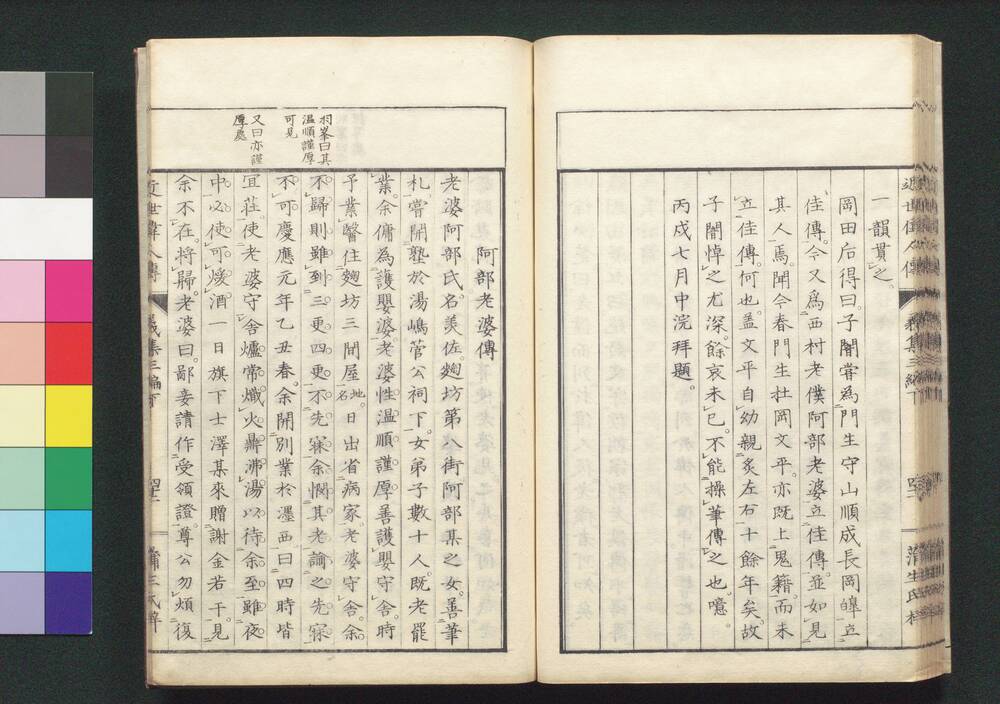 一韻貫之。
岡田后得曰。子闇嘗為門生守山順成長岡皥立
佳傳。今又為西村老僕阿部老婆立佳傳。並如見
其人焉。聞今春門生杜岡文平。亦既上鬼籍。而未
立佳傳。何也。蓋文平自幼親炙左右十餘年矣。故
子闇悼之尤深。餘哀未已。不能操筆傳之也。噫。
丙戌七月中浣拜題。
阿部老婆傳
老婆阿部氏。名美佐。麹坊第八街阿部某之女。善筆
札。嘗開塾於湯嶋菅公祠下。女弟子數十人。既老罷
業。余傭為護嬰婆。老婆性溫順謹厚。善護嬰守舍。時
予業醫住麹坊三間屋地名。日出省病家。老婆守舍。余
不歸則雖到三更四更。不先寐。余憫其老諭之先寐
不可。慶應元年乙丑春。余開別業於墨西。曰四時皆
宜莊。使老婆守舍。爐常熾火。鼎沸湯。以待余至。雖夜
中必使可煖酒。一日旗下士澤某來贈謝金若干。見
余不在將歸。老婆曰。鄙妾請作受領證。尊公勿煩復
桐峯曰其
溫順謹厚
可見
又曰亦謹
厚處
近世偉人傳
義集三編下
蒲生氏梓